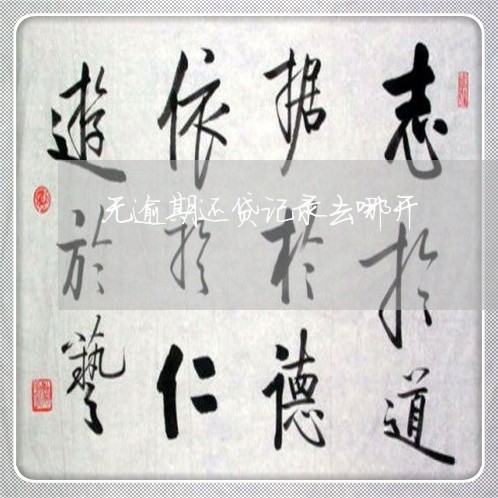 志於道
据於德
依於仁
遊於藝
无逾期还贷记录去哪开